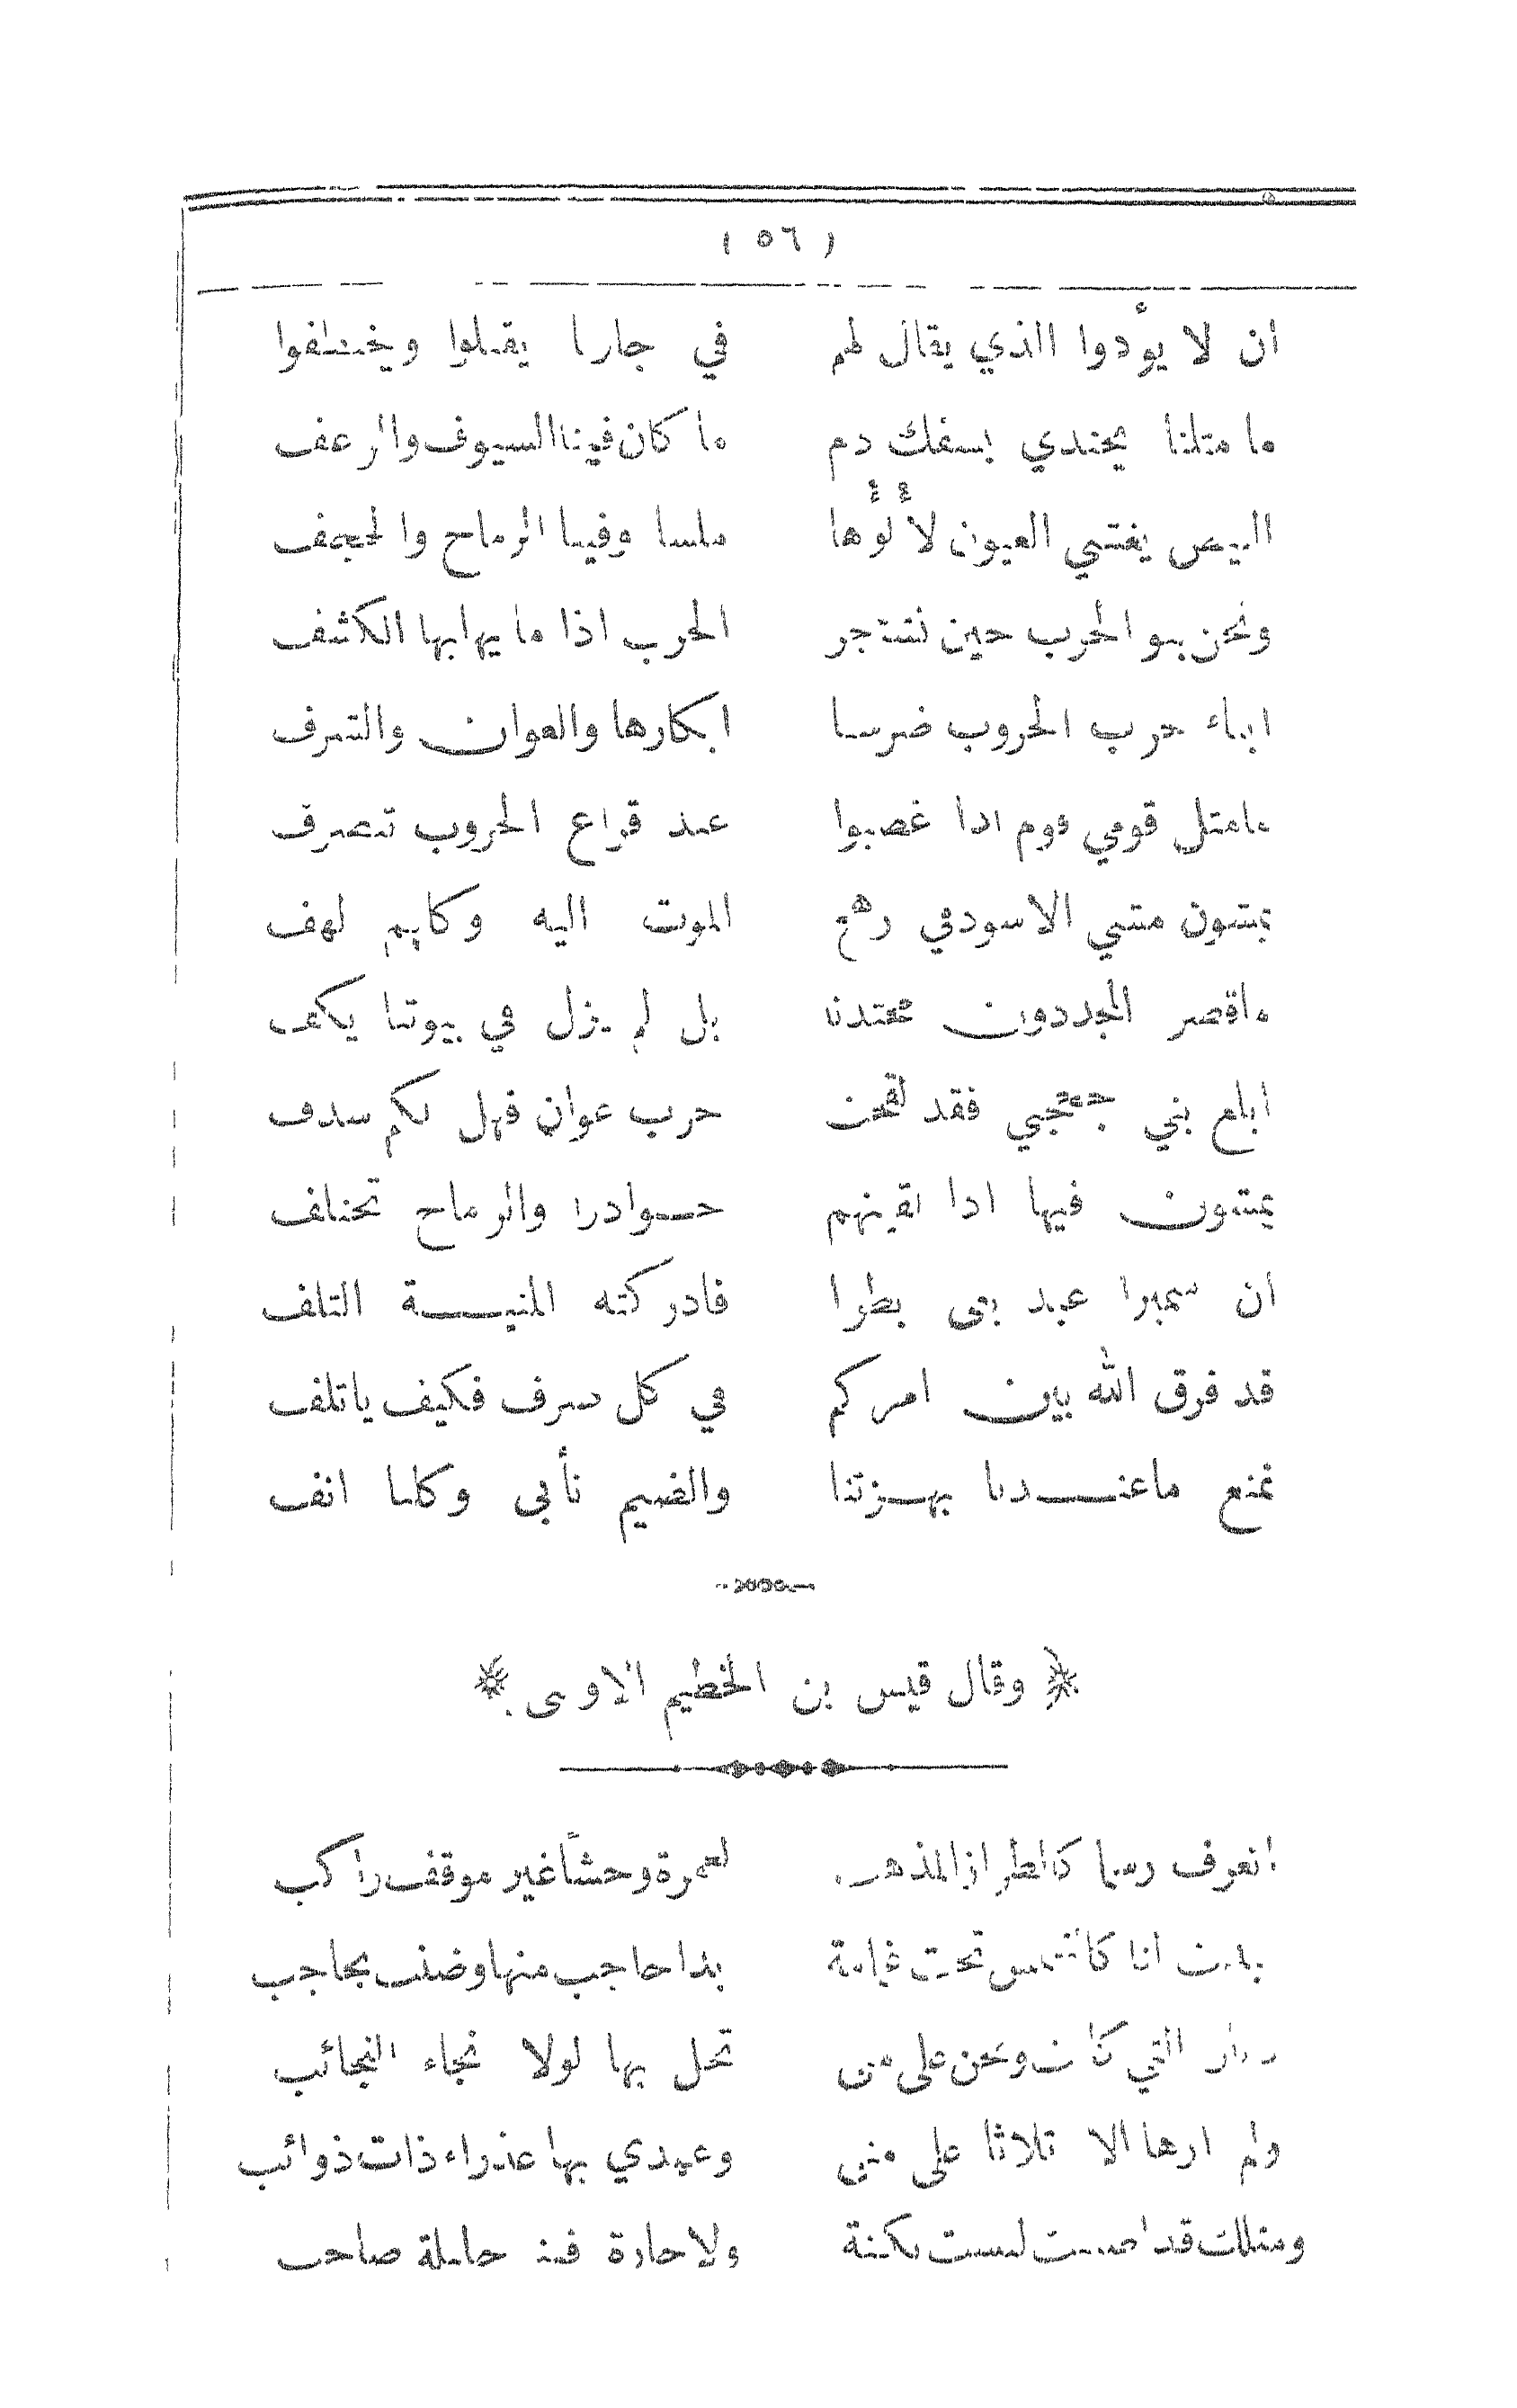 ( ٥٦ )
ان لا يؤدوا الذي يقال لهم في جارنا يقتلوا ويختطفوا
ما مثلنا يحتدي بسفك دم ما كان فينا السيوف والزعف
البيض يغشي العيون لألؤها ملسا وفينا الرماح والحجف
ونحن بنو الحرب حين تشتجر الحرب اذا ما يهابها الكشف
ابناء حرب الحروب ضرسنا ابكارها والعوان والشرف
مامثل قومي قوم اذا غضبوا عند قراع الحروب تنصرف
يمشون مشي الاسود في رهج الموت اليه وكلهم لهف
ماقصر المجد دون محتدنا بل لم يزل في بيوتنا يكف
ابلغ بني جحجبي فقد لقحت حرب عوان فهل لكم سدف
يمشون فيها اذا لقينهم حوادرا والرماح تختلف
ان سميرا عبد بغى بطرا فادركته المنية التلف
قد فرق الله بين امركم في كل صرف فكيف ياتلف
نمنع ماعندنا بهزتنا والضيم نأبى وكلنا انف
وقال قيس بن الخطيم الاوسى
اتعرف رسما كالطراز المذهب لعمرة وحشاً غير موقف راكب
تبدت لنا كالشمس تحت غمامة بدا حاجب منها وضنت بحاجب
ديار التي كانت ونحن على منى تحل بها لولا نجاء النجائب
ولم ارها الا ثلاثا على منى وعهدي بها عذراء ذات ذوائب
ومثلك قد اصبيت ليست بكنة ولا جارة فينا حليلة صاحب